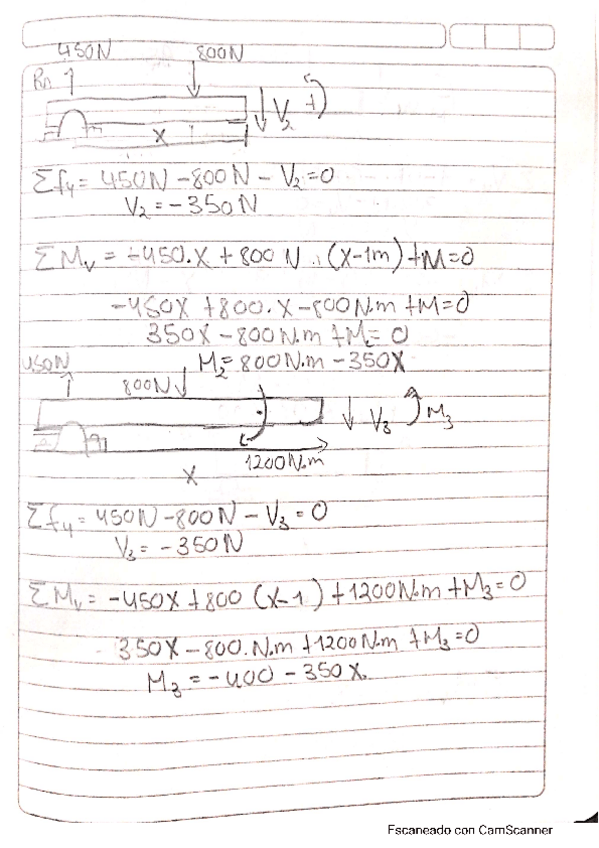 450N 800N
Rn
V₂
x
Σfy= 450N -800N - V₂=0
V₂ = -350N
ΣMv = -450.X + 800 N . (X-1m) +M=0
-450X +800.X -800N.m +M=0
350X -800N.m +M₂= 0
M₂= 800N.m -350X
450N
800N
V₃ M₃
1200N.m
X
Σfy= 450N -800N - V₃ = 0
V₃ = -350N
ΣMv = -450X +800 (X-1) +1200N.m +M₃=0
350X -800.N.m +1200N.m +M₃=0
M₃ = -400 - 350X.
Escaneado con CamScanner